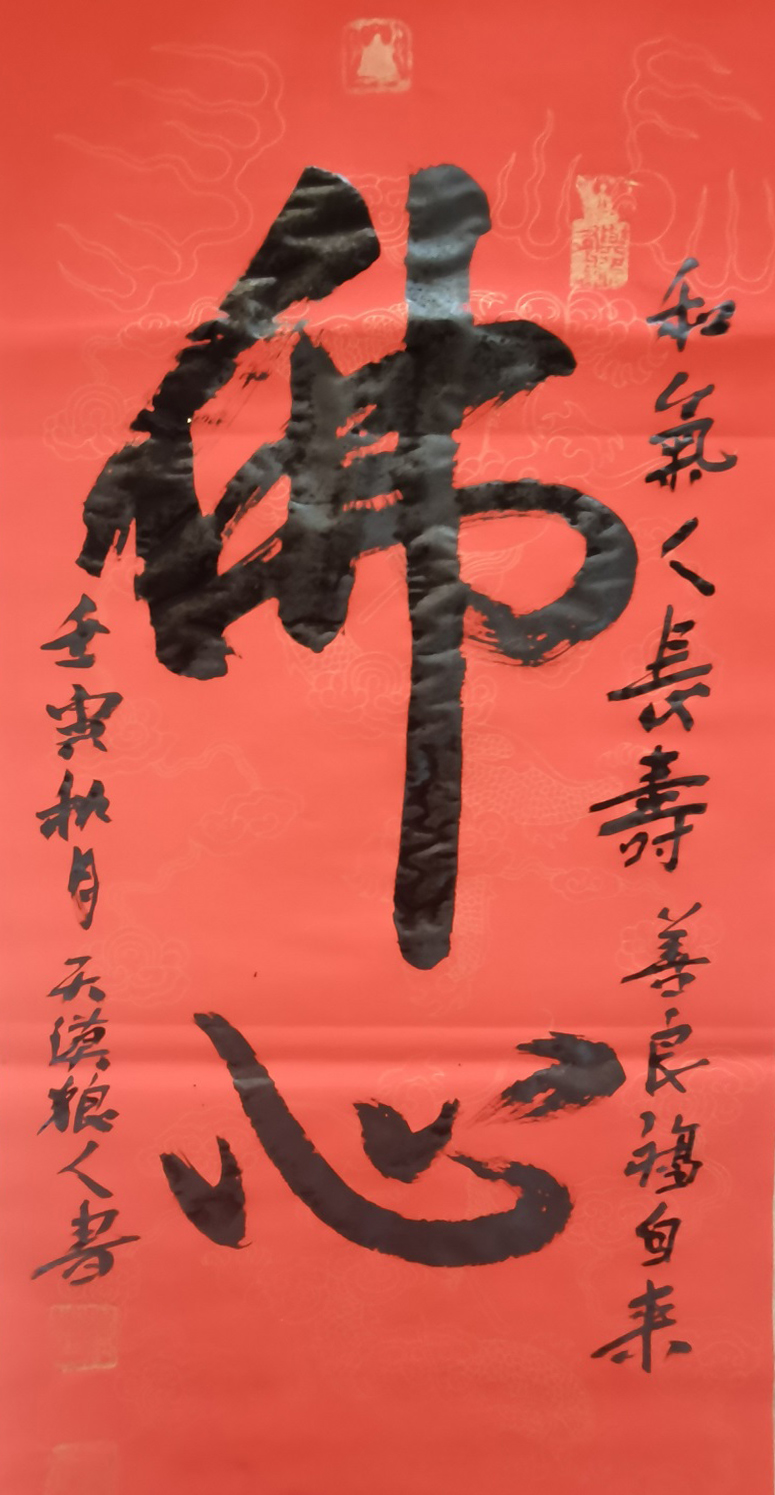 和氣人長壽善良福自来
佛心
壬寅秋月天漠狼人書